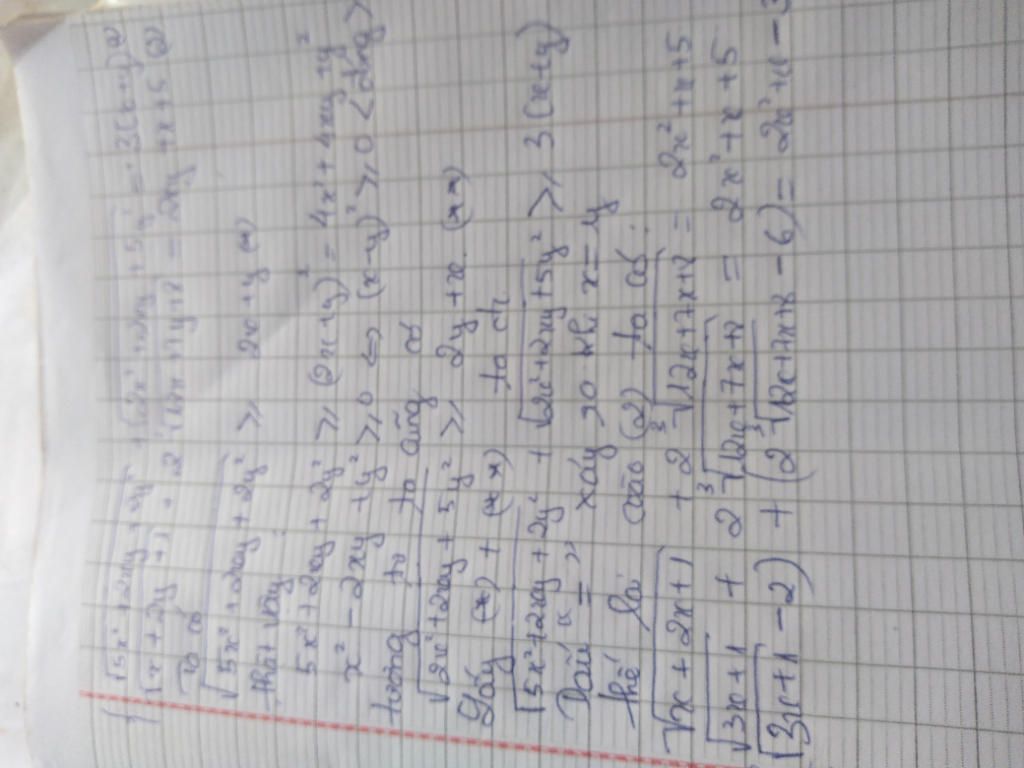 √5x²+2xy+2y² + √2x²+2xy+5y² = 3(x+y) (1)
√x+2y+1 + 2 ∛12x+7y+8 = 2xy + x+5 (2)
Ta có
√5x²+2xy+2y² ≥ 2x+y (*)
Thật vậy:
5x²+2xy+2y² ≥ (2x+y)² = 4x²+4xy+y²
x²-2xy+y² ≥ 0 <=> (x-y)² ≥ 0 < đúng >
tương tự ta cũng có
√2x²+2xy+5y² ≥ 2y+x. (**)
Lấy (*) + (**) ta đc
√5x²+2xy+2y² + √2x²+2xy+5y² ≥ 3(x+y)
Dấu "=" xảy ra khi x=y
thế lại vào (2) ta có:
√x+2x+1 + 2 ∛12x+7x+8 = 2x²+x+5
√3x+1 + 2 ∛12x+7x+8 = 2x²+x+5
(√3x+1 -2) + (2 ∛12x+7x+8 - 6) = 2x²+x-3